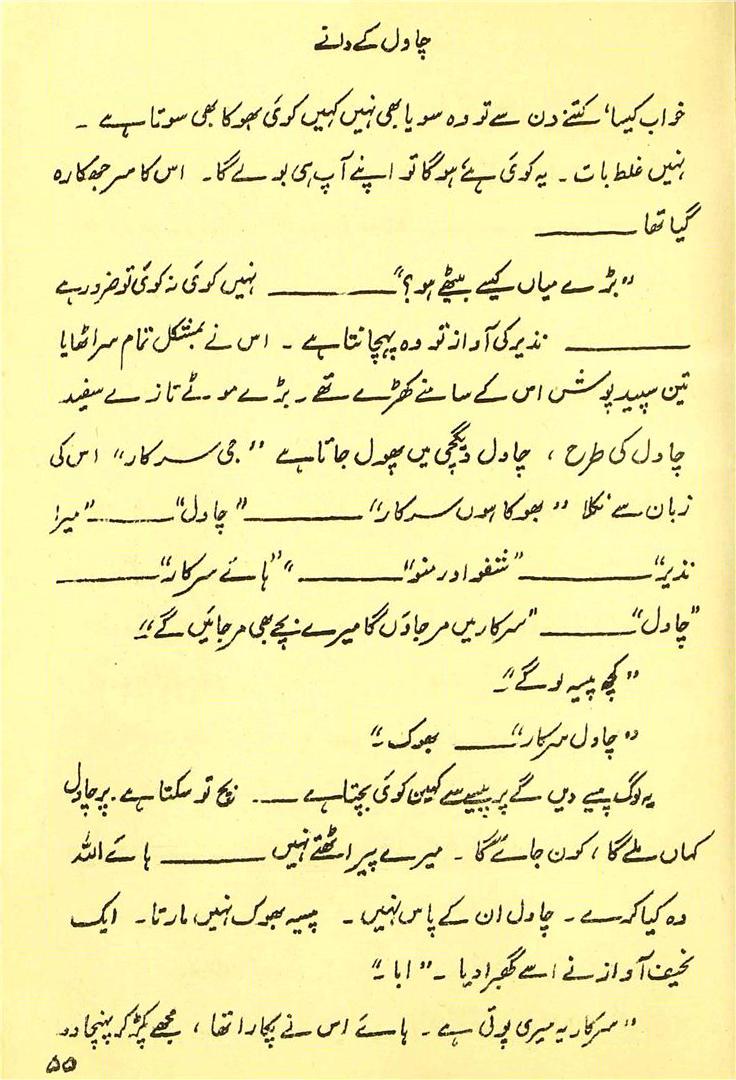 چاول کے دانے
خواب کیسا، کتنے دن سے تو وہ سویا بھی نہیں کہیں کوئی بھوکا بھی سوتا ہے ۔
نہیں غلط بات ۔ یہ کوئی ہے ہوگا تو اپنے آپ ہی بولے گا ۔ اس کا سر جھکا رہ
گیا تھا ــــــــ
”بڑے میاں کیسے بیٹھے ہو؟“ ــــــــ نہیں کوئی نہ کوئی تو ضرور ہے
ــــــــ نذیر کی آواز تو وہ پہچانتا ہے ۔ اس نے بمشکل تمام سر اٹھایا
تین سپید پوش اس کے سامنے کھڑے تھے ۔ بڑے موٹے تازے سفید
چاول کی طرح ، چاول دیگچی میں پھول جاتا ہے ”جی سرکار“ اس کی
زبان سے نکلا ”بھوکا ہوں سرکار“ ــــــــ ”چاول“ ــــــــ ”میرا
نذیر“ ــــــــ ”ننفو اور منو“ ــــــــ ”ہائے سرکار“ ــــــــ
”چاول“ ــــــــ ”سرکار میں مر جاؤں گا میرے بچے بھی مر جائیں گے“۔
”کچھ پیسہ لوگے“۔
”چاول سرکار“ ــــــــ بھوک ۔“
یہ لوگ پیسے دیں گے پر پیسے سے کہیں کوئی بچتا ہے ــــــــ بچ تو سکتا ہے ۔ پر چاول
کہاں ملے گا ، کون جائے گا ۔ میرے پیر اٹھتے نہیں ــــــــ ہائے اللہ
وہ کیا کرے ۔ چاول ان کے پاس نہیں ۔ پیسہ بھوک نہیں مارتا ۔ ایک
نحیف آواز نے اسے گھبرا دیا ۔ ”ابا ۔“
”سرکار یہ میری پوتی ہے ۔ ہائے اس نے پکارا تھا ، مجھے پکڑ کر پہنچا دو
۵۵